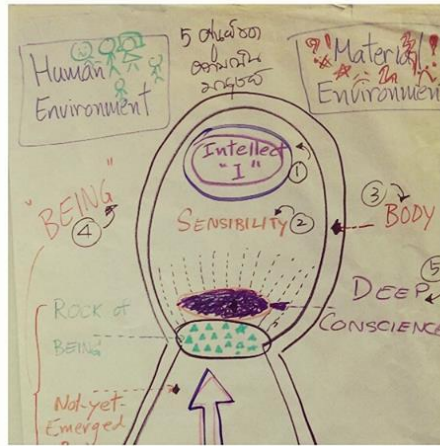 5
Human
Environment
Material
Environmen
Intellect
"I"
1
"BEING"
4
SENSIBILITY
2
3
BODY
5
DEEP
CONSCIENCE
ROCK OF
BEING
Not-yet-
Emerged